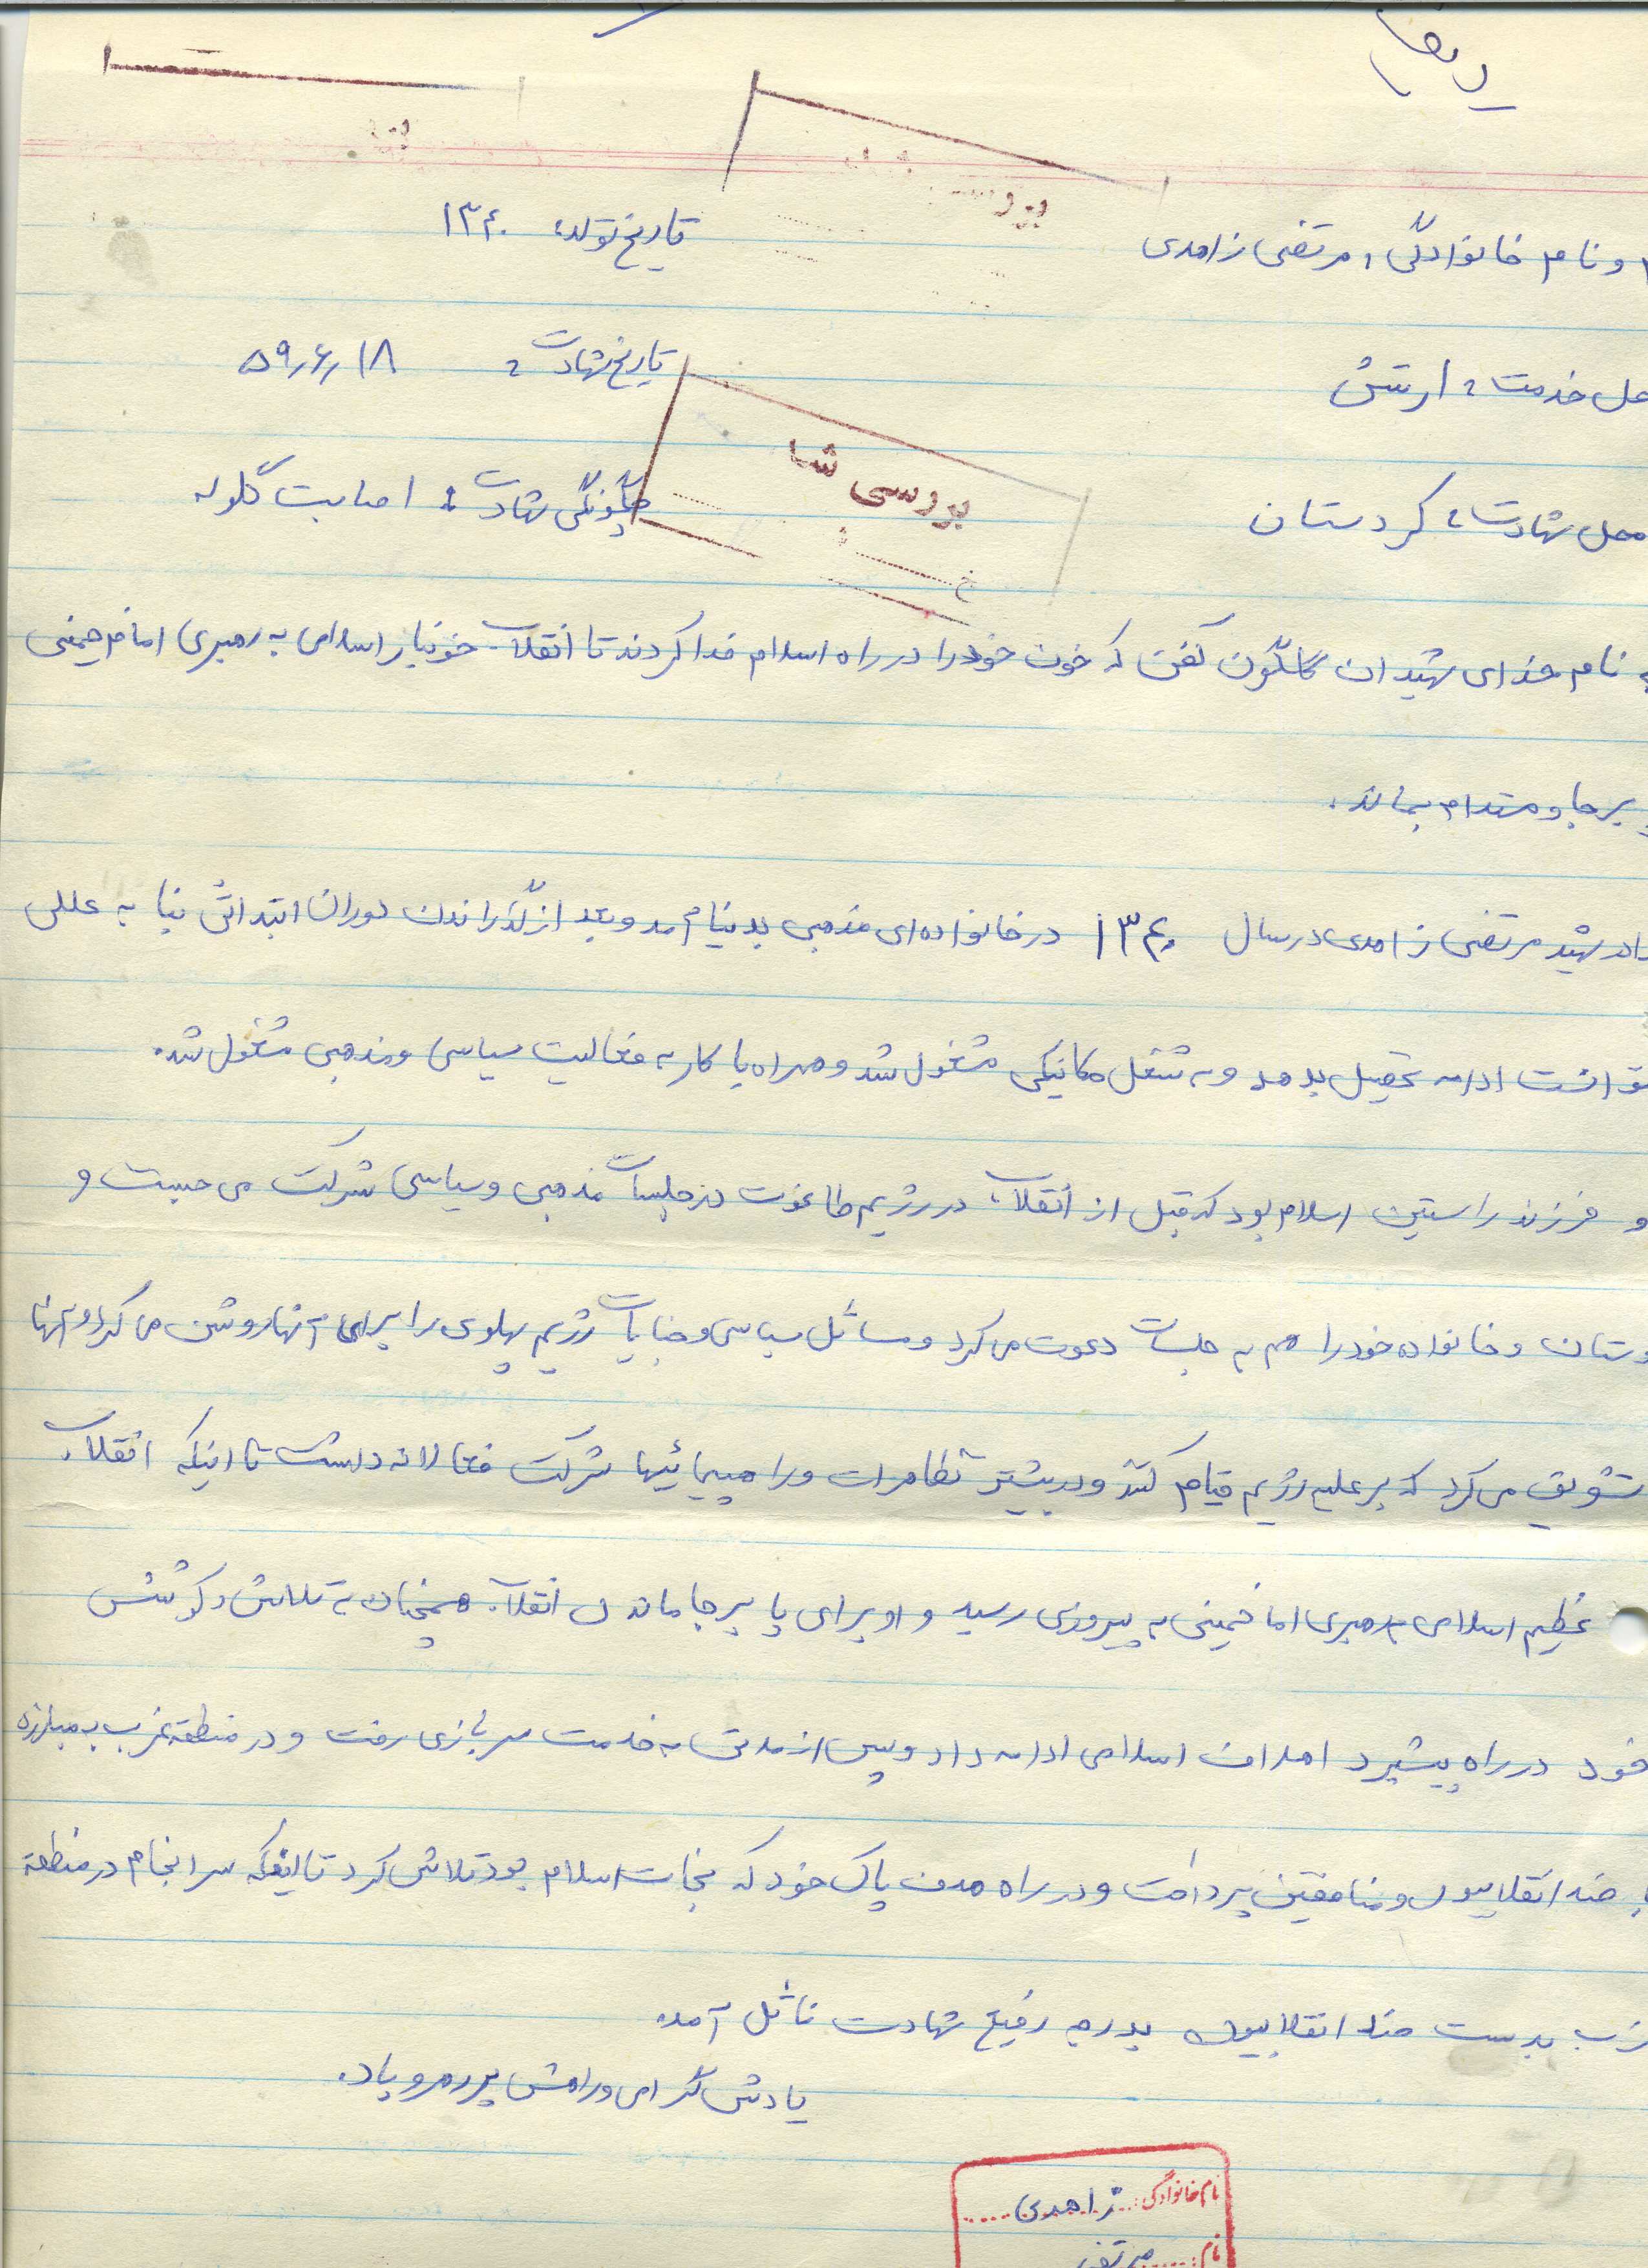 و نام خانوادگی: مرتضی زاهدی تاریخ تولد: ۱۳۴۰
خدمت: ارتش تاریخ شهادت: ۵۹/۶/۱۸
محل شهادت: کردستان چگونگی شهادت: اصابت گلوله
بررسی شد
به نام خدای شهیدان گلگون کفن که خون خود را در راه اسلام فدا کردند تا انقلاب خونبار اسلامی به رهبری امام خمینی
برجا و مستدام بماند.
شهید مرتضی زاهدی در سال ۱۳۴۰ در خانواده‌ای مذهبی بدنیا آمد و بعد از گذراندن دوران ابتدائی بنا به عللی
ادامه تحصیل بدهد و به شغل مکانیکی مشغول شد و همراه با کار به فعالیت سیاسی و مذهبی مشغول شد.
و فرزند راستین اسلام بود که قبل از انقلاب در رژیم طاغوت در جلسات مذهبی و سیاسی شرکت می جست و
و خانواده خود را هم به جلسات دعوت می کرد و مسائل سیاسی و جنایات رژیم پهلوی را برای آنها روشن می کرد و آنها
تشویق می کرد که بر علیه رژیم قیام کنند و در بیشتر تظاهرات و راهپیمائیها شرکت فعالانه داشت تا اینکه انقلاب
عظیم اسلامی به رهبری امام خمینی به پیروزی رسید و او برای پا برجا ماندن انقلاب همچنان به تلاش و کوشش
خود در راه پیشبرد اهداف اسلامی ادامه داد و پس از مدتی به خدمت سربازی رفت و در منطقه غرب به مبارزه
ضد انقلابیون و منافقین پرداخت و در راه هدف پاک خود که نجات اسلام بود تلاش کرد تا اینکه سرانجام در منطقه
بدست ضد انقلابیون بدرجه رفیع شهادت نائل آمد.
یادش گرامی و راهش پررهرو باد.
نام خانوادگی: زاهدی
نام: مرتضی